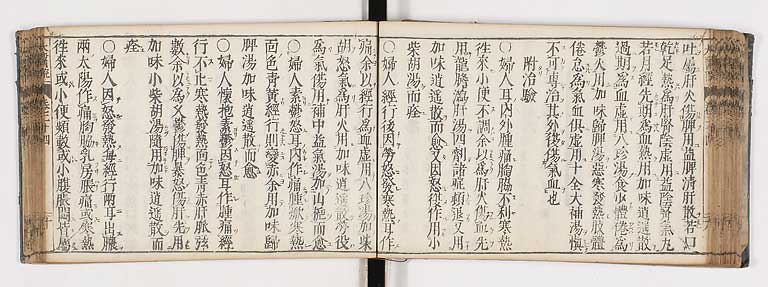 吐屬肝火傷脾用益脾清肝散若口
乾足熱為肝腎陰虛用益陰腎氣丸
若月經先期為血熱用加味逍遙散
過期為血虛用八珍湯食少體倦為
鬱火用加味歸脾湯惡寒發熱肢體
倦怠為氣血俱虛用十全大補湯慎
不可專治其外復傷氣血也
附治驗
〇婦人耳內外腫痛胸脇不利寒熱
往來小便不調余以為肝火傷血先
用龍膽瀉肝湯四劑諸症頓退又用
加味逍遙散而愈又因怒復作用小
柴胡湯而痊
〇婦人經行後因勞怒發寒熱耳作
痛余以經行為血虛用八珍湯加柴
胡怒氣為肝火用加味逍遙散勞役
為氣傷用補中益氣湯加山梔而愈
〇婦人素鬱怒耳內作痛腫焮寒熱
面色青黃經行則變赤余用加味歸
脾湯加味逍遙散而愈
〇婦人懷抱素鬱因怒耳作腫痛經
行不止寒熱發熱面色青赤肝脈弦
數余以為久鬱傷脾暴怒傷肝先用
加味小柴胡湯隨用加味逍遙散而
痊
〇婦人因怒發熱每經行兩耳出膿
兩太陽作痛胸脇乳房脹痛或寒熱
往來或小便頻數或小腹脹悶皆屬